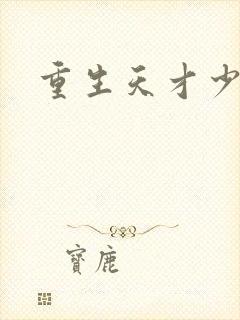 重生天才少
寶鹿